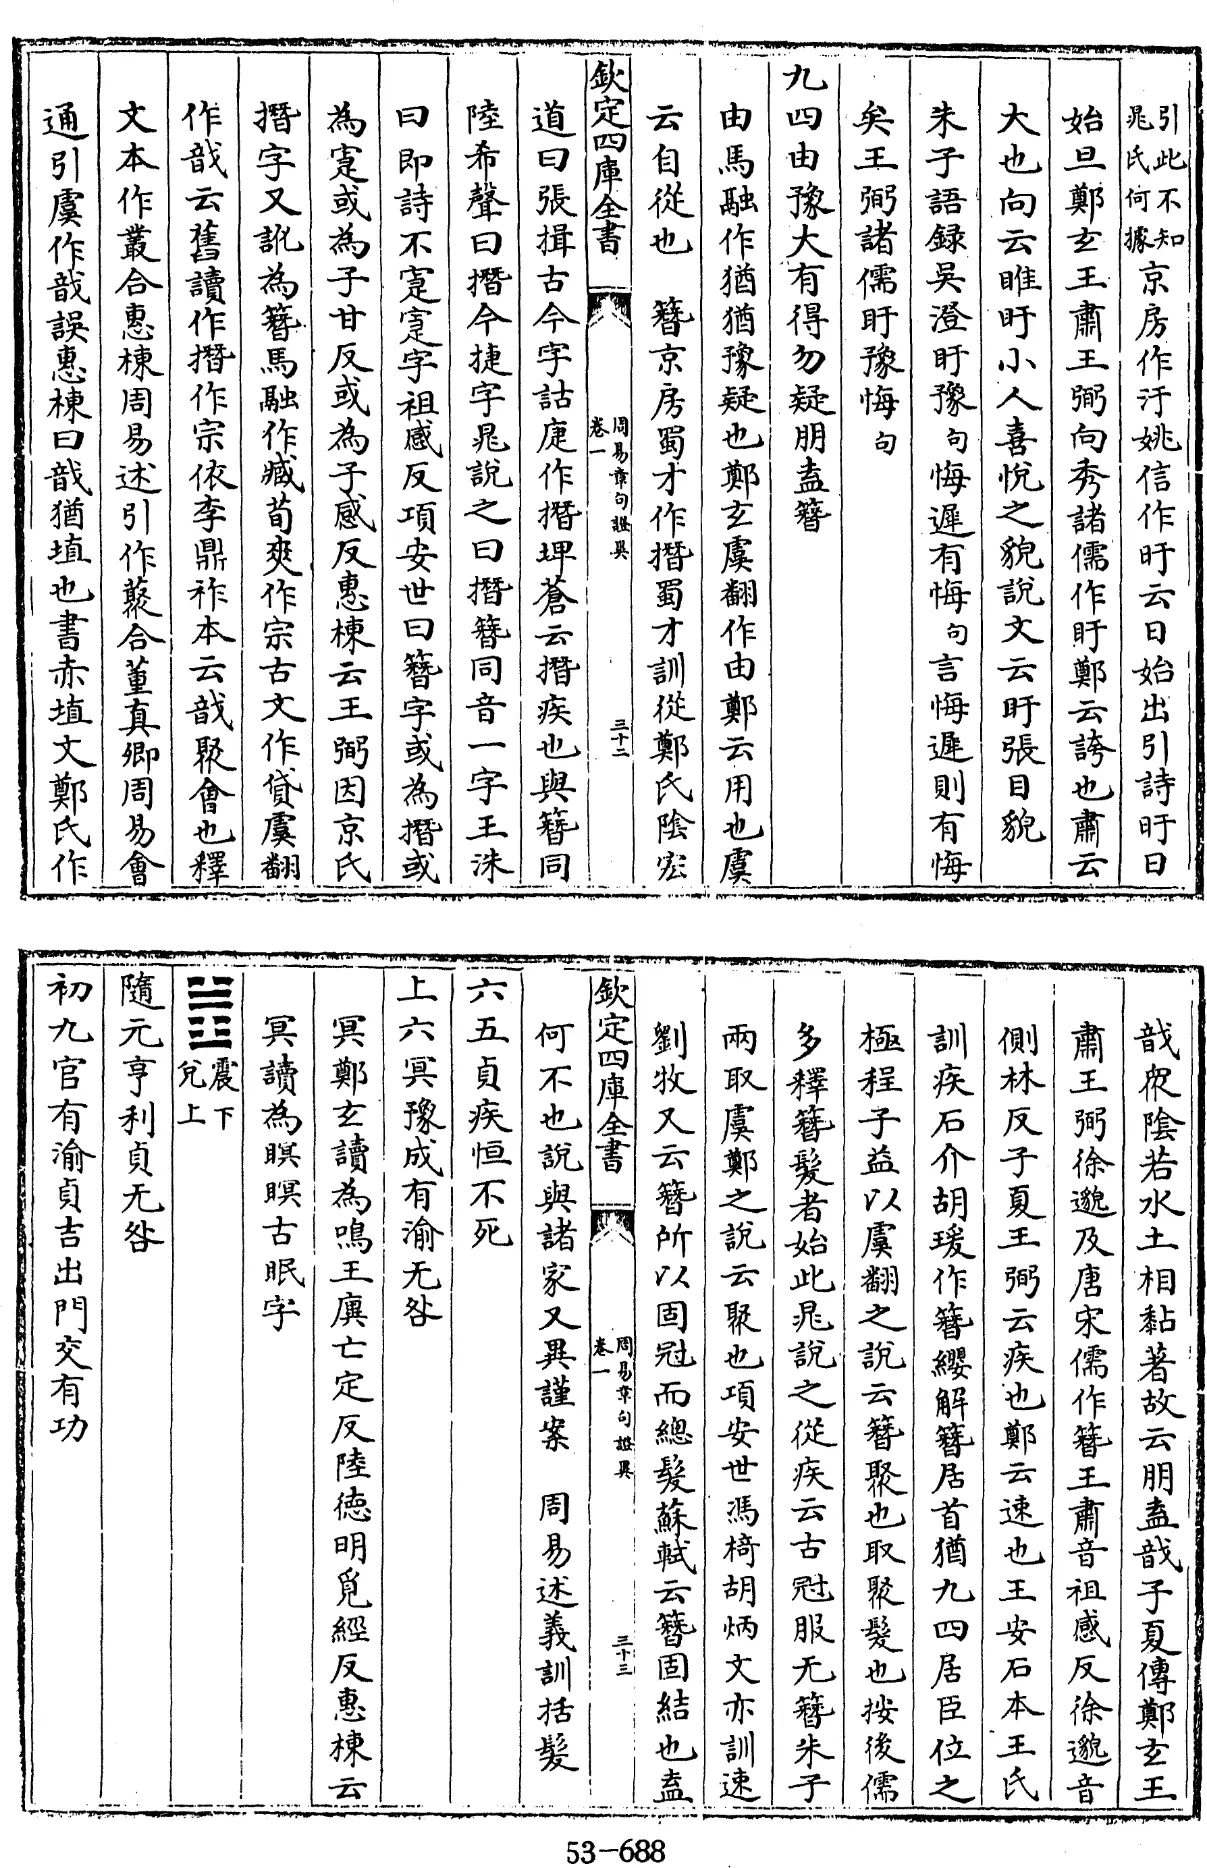 引此不知
晁氏何據
京房作汙姚信作旴云日始出引詩旴日
始旦鄭玄王肅王弼向秀諸儒作盱鄭云誇也肅云
大也向云睢盱小人喜悅之貌說文云盱張目貌
朱子語錄吳澄盱豫句悔遲有悔句言悔遲則有悔
矣王弼諸儒盱豫悔句
九四由豫大有得勿疑朋盍簪
由馬融作猶猶豫疑也鄭玄虞翻作由鄭云用也虞
云自從也　簪京房蜀才作撍蜀才訓從鄭氏陰宏
欽定四庫全書
周易章句證異
卷一
三十二
道曰張揖古今字詁疌作撍埤蒼云撍疾也與簪同
陸希聲曰撍今捷字晁說之曰撍簪同音一字王洙
曰即詩不寁寁字祖感反項安世曰簪字或為撍或
為寁或為子甘反或為子感反惠棟云王弼因京氏
撍字又訛為簪馬融作臧荀爽作宗古文作貸虞翻
作戠云舊讀作撍作宗依李鼎祚本云戠聚會也釋
文本作叢合惠棟周易述引作藂合董真卿周易會
通引虞作戠誤惠棟曰戠猶埴也書赤埴文鄭氏作
戠衆陰若水土相黏著故云朋盍戠子夏傳鄭玄王
肅王弼徐邈及唐宋儒作簪王肅音祖感反徐邈音
側林反子夏王弼云疾也鄭云速也王安石本王氏
訓疾石介胡瑗作簪纓解簪居首猶九四居臣位之
極程子益以虞翻之說云簪聚也取聚髮也按後儒
多釋簪髮者始此晁說之從疾云古冠服无簪朱子
兩取虞鄭之說云聚也項安世馮椅胡炳文亦訓速
劉牧又云簪所以固冠而總髮蘇軾云簪固結也盍
欽定四庫全書
周易章句證異
卷一
三十三
何不也說與諸家又異謹案　周易述義訓括髮
六五貞疾恒不死
上六冥豫成有渝无咎
冥鄭玄讀為鳴王廙亡定反陸德明覓經反惠棟云
冥讀為瞑瞑古眠字
震下
兌上
隨元亨利貞无咎
初九官有渝貞吉出門交有功
53-688